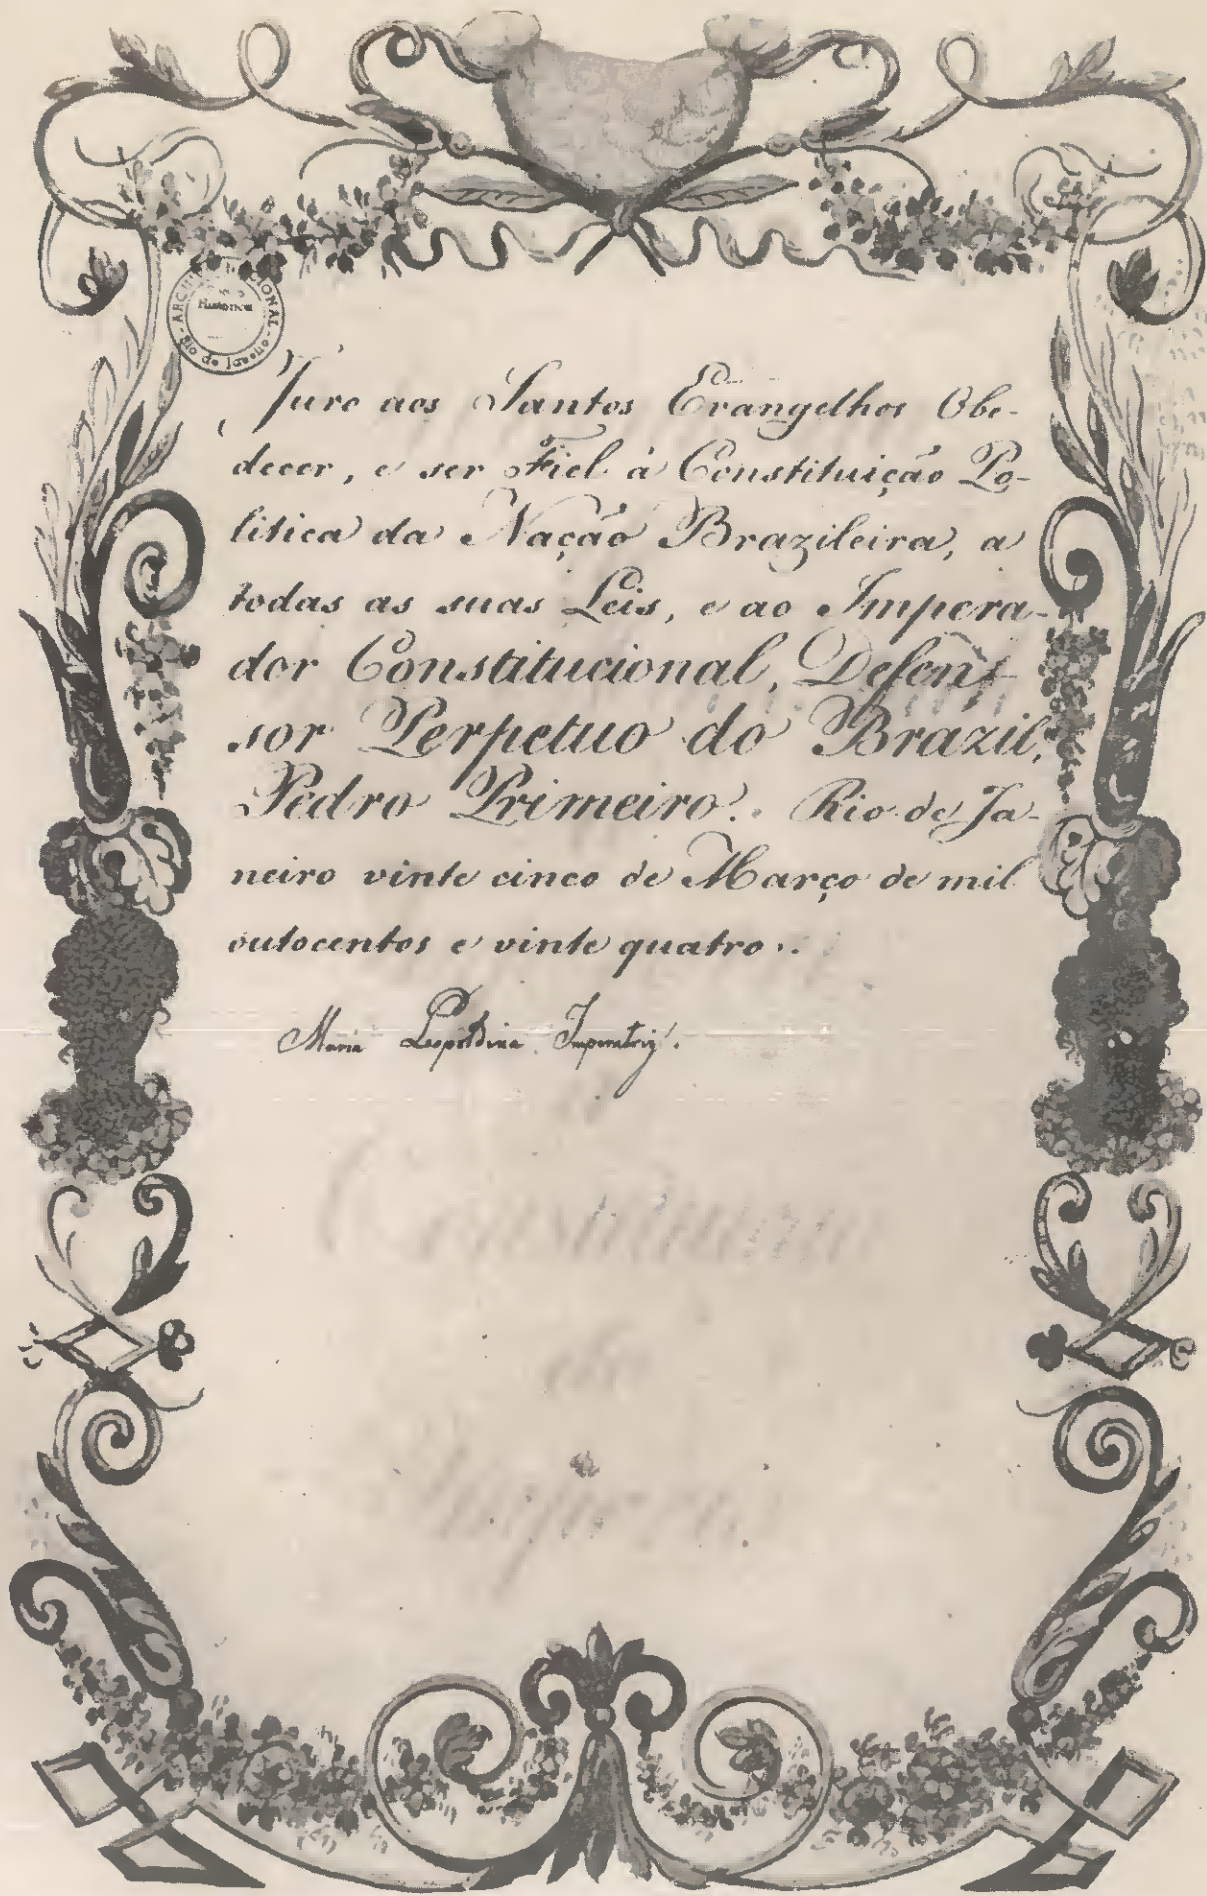 ARCHIVO NACIONAL
Historica
Rio de Janeiro
Juro aos Santos Evangelhos Obe-
decer, e ser Fiel á Constituição Po-
litica da Nação Brazileira, a
todas as suas Leis, e ao Impera-
dor Constitucional, Defen-
sor Perpetuo do Brazil,
Pedro Primeiro. Rio de Ja-
neiro vinte cinco de Março de mil
outocentos e vinte quatro..
Maria Leopoldina Imperatriz.
Constituição
do
Imperio